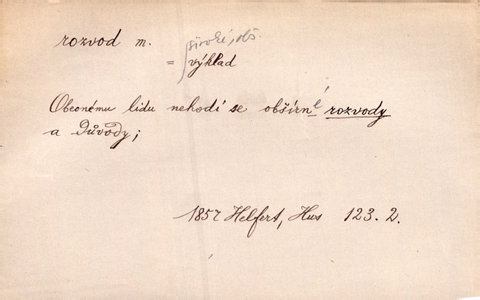 rozvod m. široké, obš.
= výklad
Obecnému lidu nehodí se obšírné rozvody
a důvody;
1857 Helfert, Hus 123. 2.